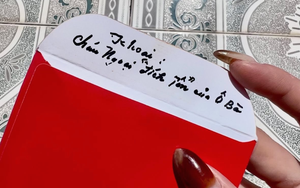 Tr hoài :
cháu Ngoại Tích Tồn của Ô Bà